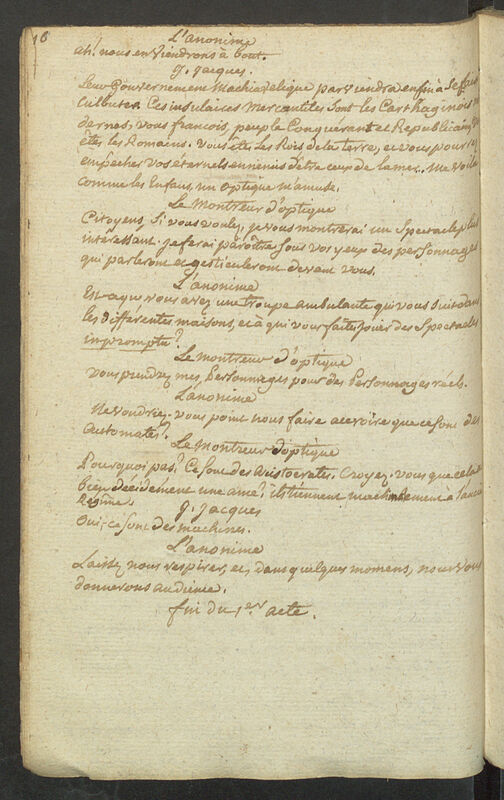 16
L'anonime
ah! nous en viendrons à bout.
J. Jacques.
Leur Gouvernement Machiavelique parviendra enfin à se faire
culbuter. Ces insulaires Mercantiles sont les Carthaginois
dernes; vous françois, peuple Conquérant et Republicain,
êtes les Romains. vous êtes les Rois de la terre, et vous pourrez
empecher vos éternels ennemis d'être ceux de la mer. me voilà
comme les Enfans, un optique m'amuse.
Le Montreur d'optique
Citoyens, si vous voulez, je vous montrerai un Spectacle plus
intéressant. je ferai paroître sous vos yeux des personnages
qui parleront et gesticuleront devant vous.
L'anonime
Est-ce que vous avez une troupe ambulante qui vous suit dans
les différentes maisons, et à qui vous faites jouer des Spectacles
impromptu?
Le montreur d'optique
vous prendrez mes Personnages pour des Personnages réels.
L'anonime
Ne voudriez-vous point nous faire accroire que ce sont des
automates?
Le Montreur d'optique
Pourquoi pas? Ce sont des Aristocrates. Croyez-vous que cela ait
bien décidément une ame? ils tiennent machinalement à l'ancien
Régime.
J. Jacques
Oui; ce sont des machines.
L'anonime
Laissez nous respirer, et, dans quelques momens, nous vous
donnerons audience.
fin du 1er acte.